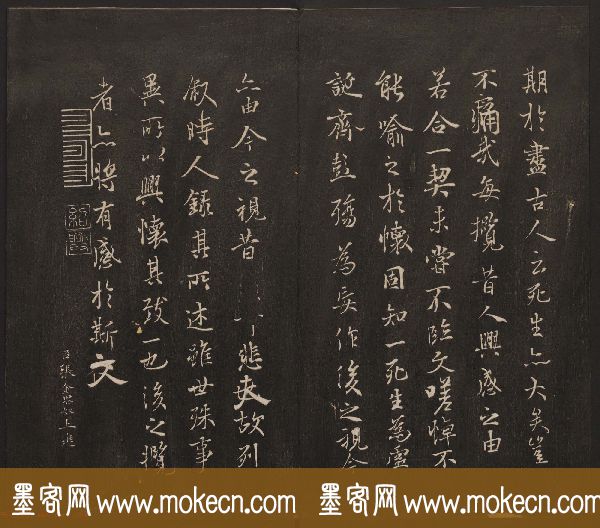 期於盡古人云死生亦大矣豈
不痛哉每攬昔人興感之由
若合一契未嘗不臨文嗟悼不
能喻之於懷固知一死生為虛
誕齊彭殤為妄作後之視今
亦由今之視昔悲夫故列
敘時人錄其所述雖世殊事
異所以興懷其致一也後之攬
者亦將有感於斯文
臣張金界奴上進
紹興
墨客网 www.mokecn.com
墨客网 www.mokecn.com